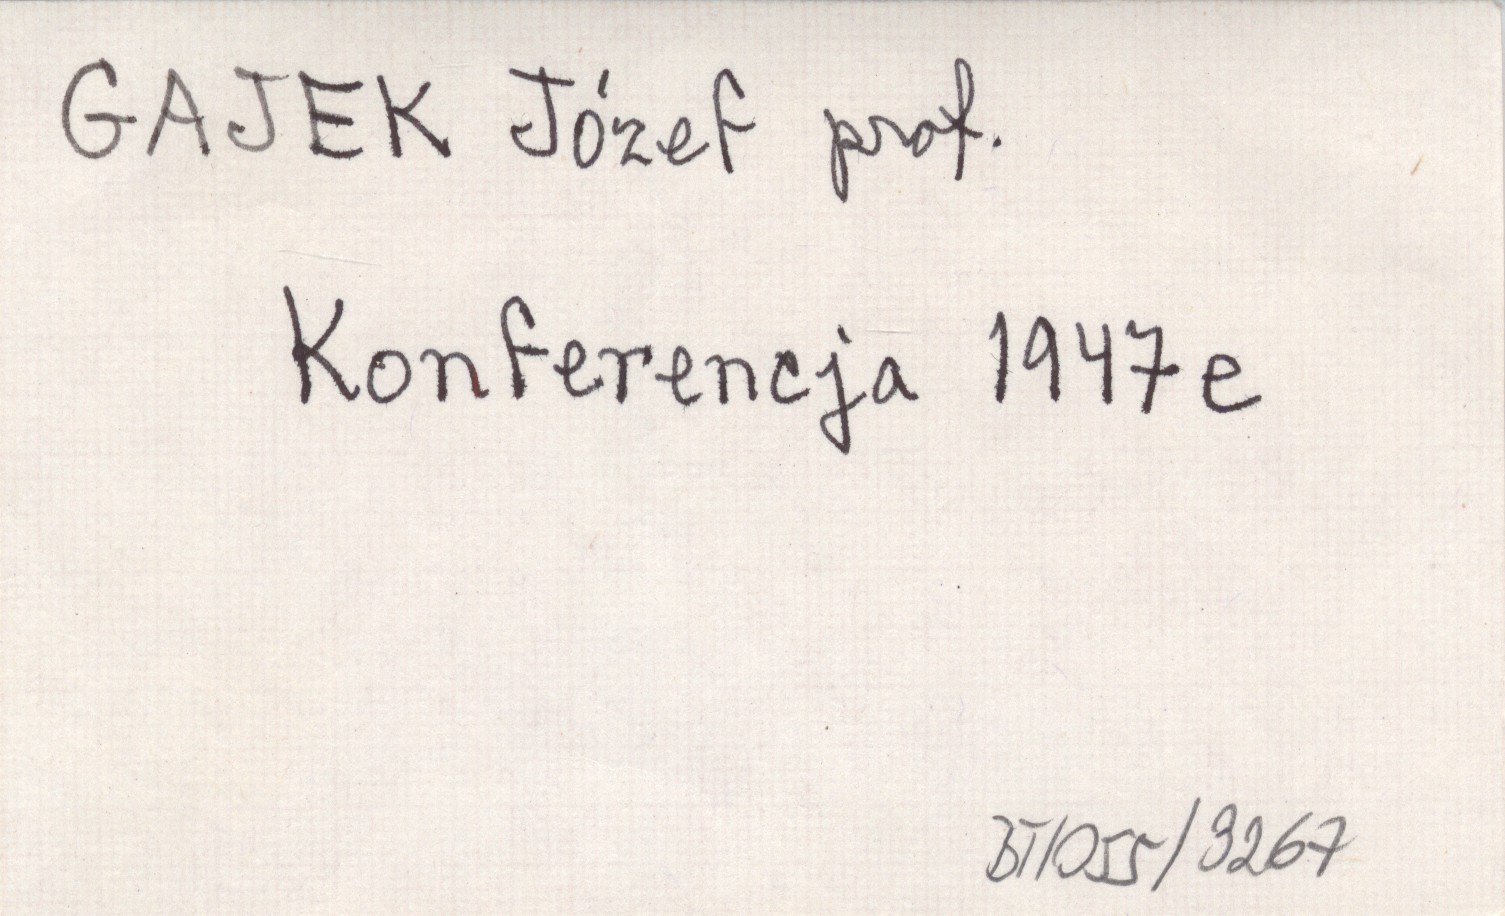 GAJEK Józef prof.
Konferencja 1947 e
BT/OSS/9267